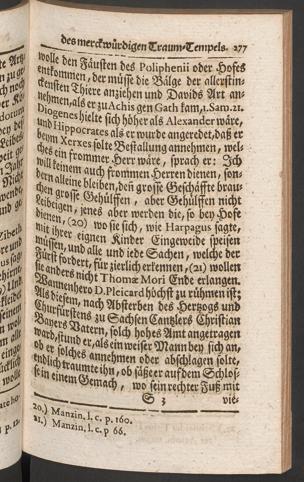 des merckwürdigen Traum-Tempels. 277
wolle den Fäusten des Poliphenii oder Hofes
entkommen, der müsse die Bälge der allerstin-
ckensten Thiere anziehen und Davids Art an-
nehmen, als er zu Achis gen Gath kam, 1. Sam. 21.
Diogenes hielte sich höher als Alexander wäre,
und Hippocrates als er wurde angeredet, daß er
beym Xerxes solte Bestallung annehmen, wel-
ches ein frommer Herr wäre, sprach er: Ich
will keinem auch frommen Herren dienen, son-
dern alleine bleiben, den grosse Geschäffte brau-
chen grosse Gehülffen, aber Gehülffen nicht
Leibeigen, jenes aber werden die, so bey Hofe
dienen, (20) wo sie sich, wie Harpagus sagte,
mit ihrer eignen Kinder Eingeweide speisen
müssen, und alle und iede Sachen, welche der
Fürst fordert, für zierlich erkennen, (21) wollen
sie anders nicht Thomæ Mori Ende erlangen.
Wannenhero D. Pleicard höchst zu rühmen ist;
Als diesem, nach Absterben des Hertzogs und
Churfürstens zu Sachsen Cantzlers Christian
Bayers Vatern, solch hohes Amt angetragen
ward, stund er, als ein weiser Mann bey sich an,
ob er solches annehmen oder abschlagen solte,
endlich traumte ihn, ob säße er auf dem Schlos-
se in einem Gemach, wo sein rechter Fuß mit
S 3 vie-
20.) Manzin, l. c. p. 160.
21.) Manzin. l. c. p 66.